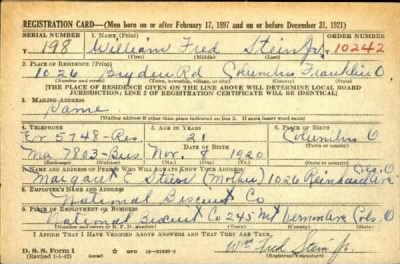 REGISTRATION CARD—(Men born on or after February 17, 1897 and on or before December 31, 1921)
SERIAL NUMBER 1. NAME (Print) ORDER NUMBER
198 William Fred Stein Jr. 10242
(First) (Middle) (Last)
2. PLACE OF RESIDENCE (Print)
1026 Bryden Rd Columbus Franklin O
(Number and street) (Town, township, village, or city) (County) (State)
[THE PLACE OF RESIDENCE GIVEN ON THE LINE ABOVE WILL DETERMINE LOCAL BOARD
JURISDICTION; LINE 2 OF REGISTRATION CERTIFICATE WILL BE IDENTICAL]
3. MAILING ADDRESS
Same
[Mailing address if other than place indicated on line 2. If same insert word same]
4. TELEPHONE 5. AGE IN YEARS 6. PLACE OF BIRTH
5748-Res. 21 Columbus
DATE OF BIRTH
Ma 7803-Bus Nov. 8 1920 O
(Exchange) (Number) (Mo.) (Day) (Yr.) (State or country)
7. NAME AND ADDRESS OF PERSON WHO WILL ALWAYS KNOW YOUR ADDRESS
Margaret C Stein (Mother) 1026
8. EMPLOYER'S NAME AND ADDRESS
National Biscuit Co
9. PLACE OF EMPLOYMENT OR BUSINESS
National Biscuit Co 245 Mt Vernon Ave Cols. O
(County) (State)
I AFFIRM THAT I HAVE VERIFIED ABOVE ANSWERS AND THAT THEY ARE TRUE.
D. S. S. Form 1
(Revised 1-1-42) (over)
Wm Fred Stein Jr.